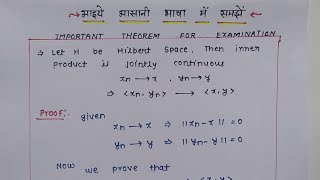 आइये आसानी भाषा में समझें
IMPORTANT THEOREM FOR EXAMINATION
→ Let H be Hilbert Space, Then inner
product is jointly continuous
xn → x, yn → y
⇒ <xn, yn> → <x, y>
PROOF: given
xn → x ⇒ ||xn - x|| = 0
yn → y ⇒ ||yn - y|| = 0
Now we prove that